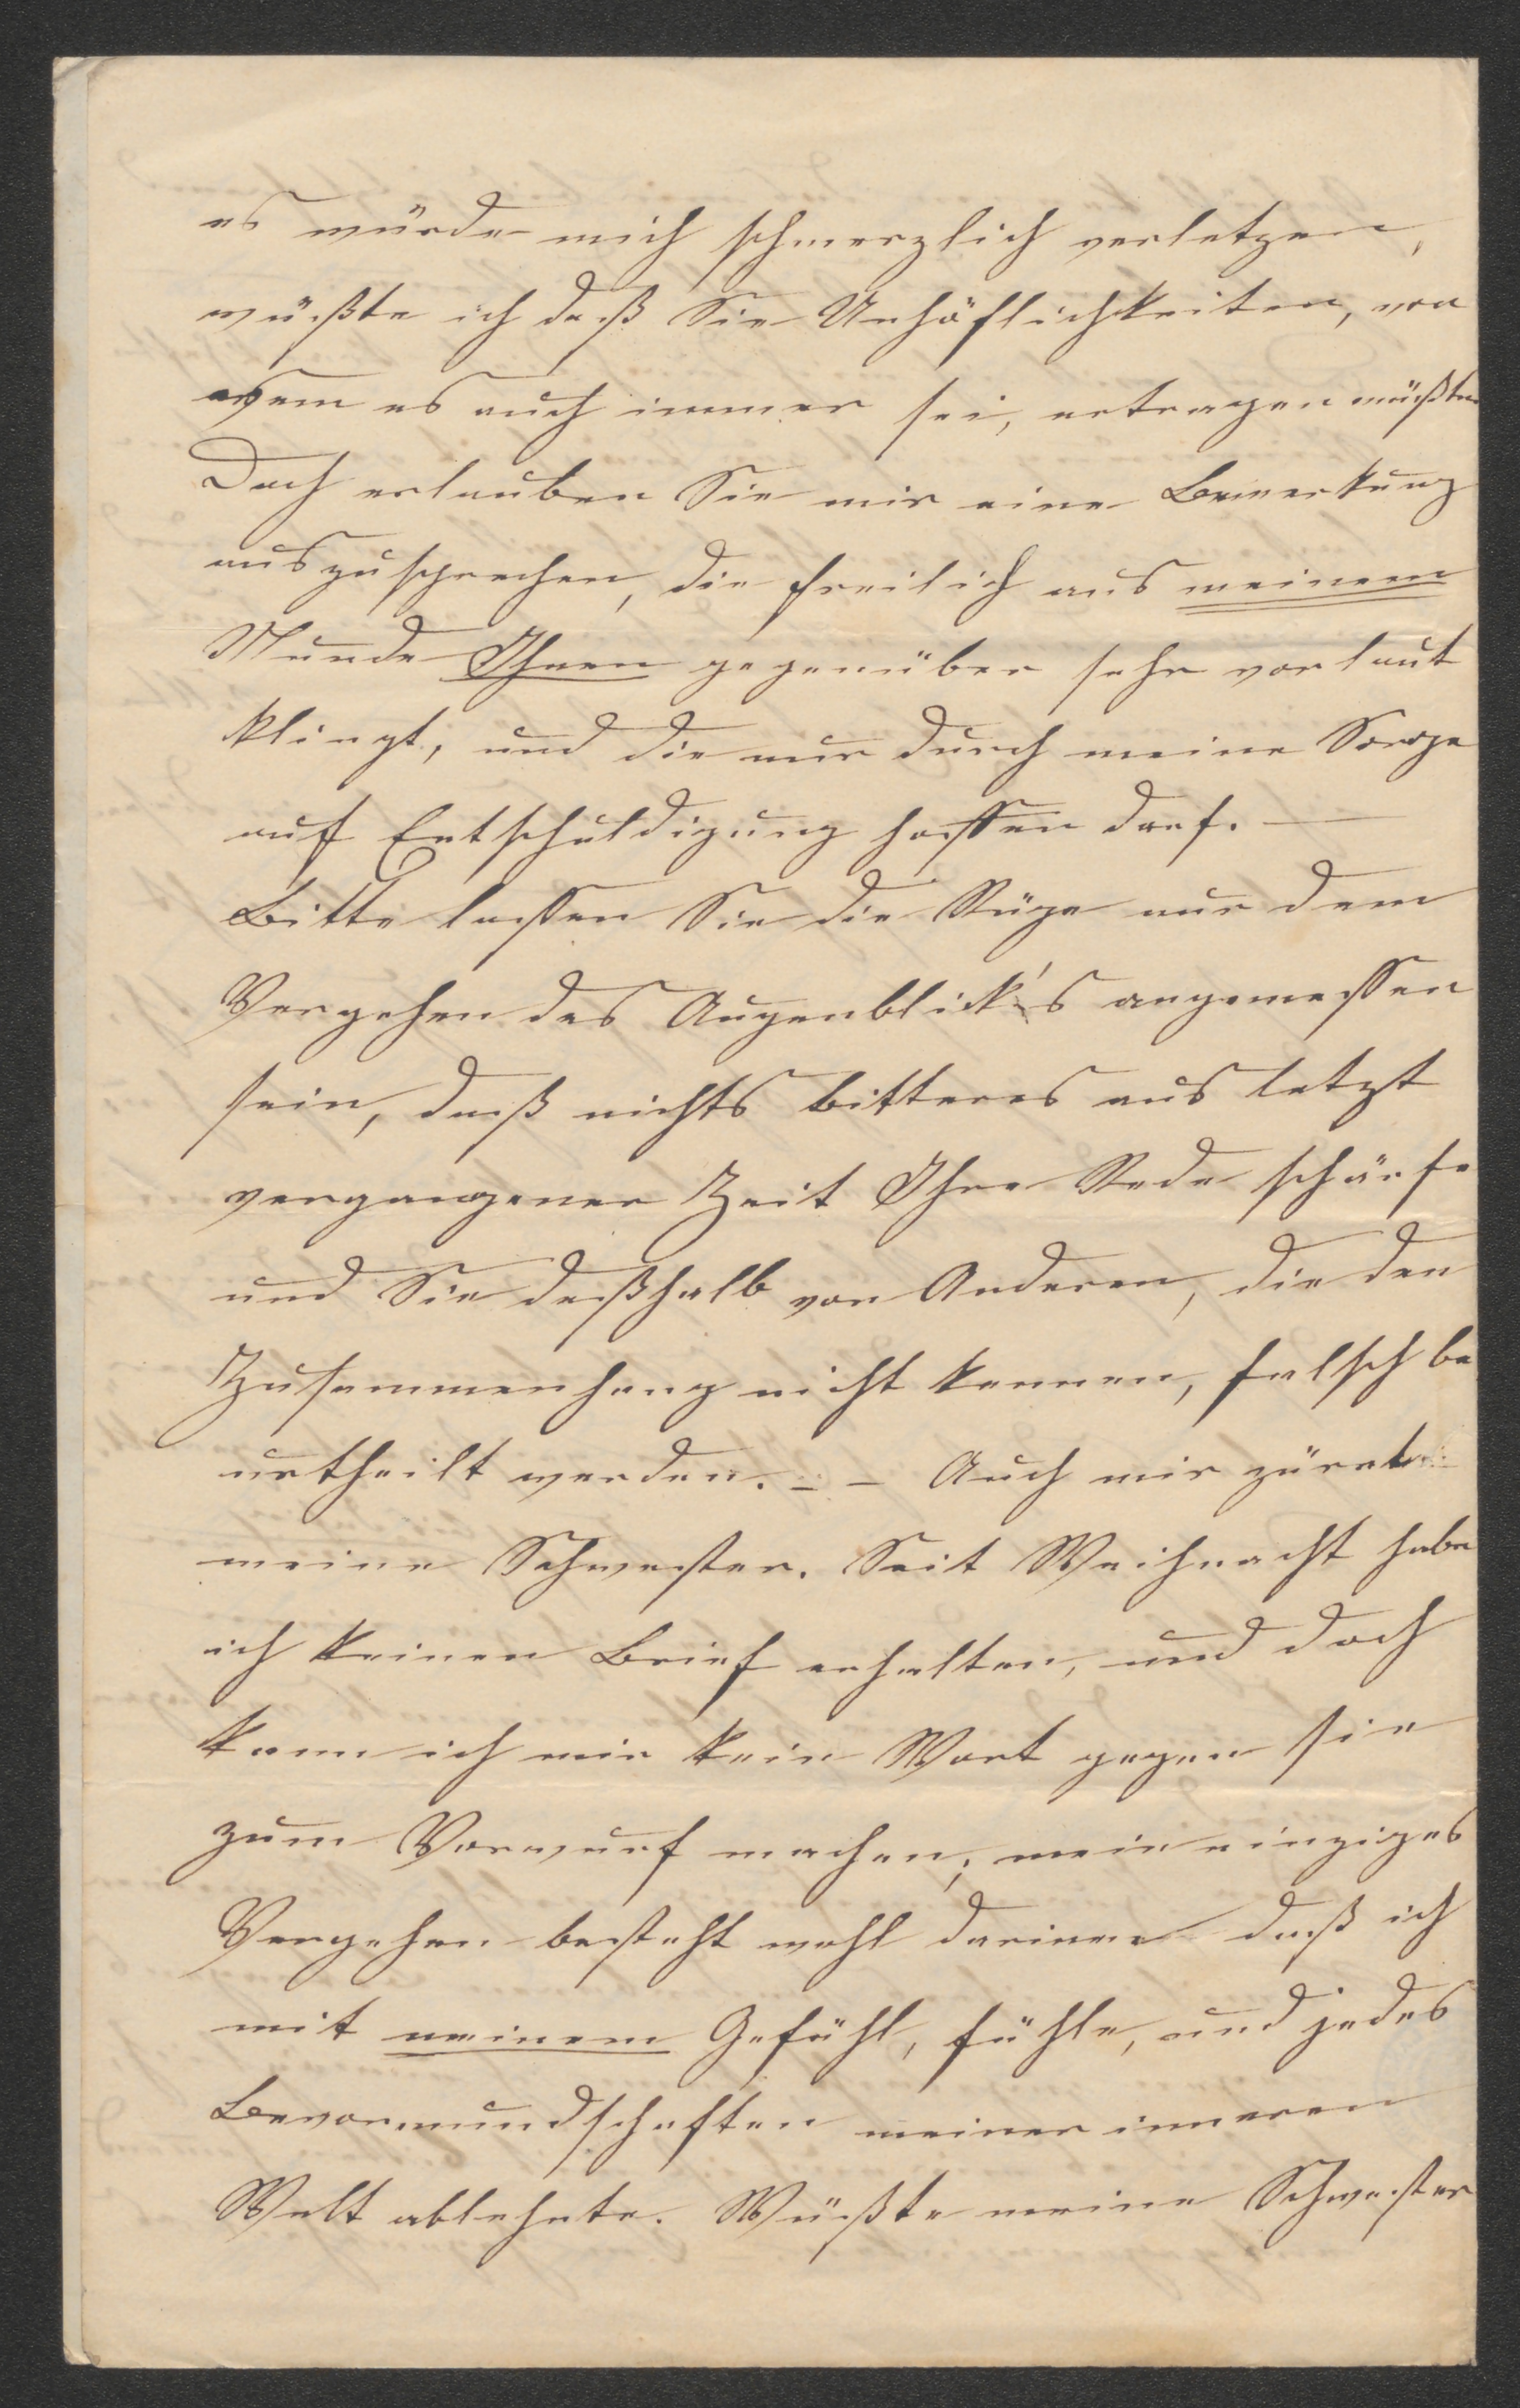 es würde mich schmerzlich verletzen,
wüßte ich daß Sie Unhöflichkeiten, von
wem es auch immer sei, ertragen müßten
Doch erlauben Sie mir eine Bemerkung
auszusprechen, die freilich aus meinem
Munde Ihnen gegenüber sehr vorlaut
klingt, und die nur durch meine Sorge
auf Entschuldigung hoffen darf. —
Bitte lassen Sie die Rüge nur dem
Vergehen des Augenblick's angemessen
sein, daß nichts bitteres aus letzt
vergangener Zeit Ihre Rede schärfe
und Sie deßhalb von Anderen, die den
Zusammenhang nicht kennen, falsch be
urtheilt werden. – – Auch mir zürnt
meine Schwester. Seit Weihnacht habe
ich keinen Brief erhalten, und doch
kann ich mir kein Wort gegen sie
zum Vorwurf machen; mein einziges
Vergehen besteht wohl darinnen daß ich
mit meinem Gefühl, fühle, und jedes
Bevormundschaften meiner inneren
Welt ablehnte. Wüßte meine Schwester